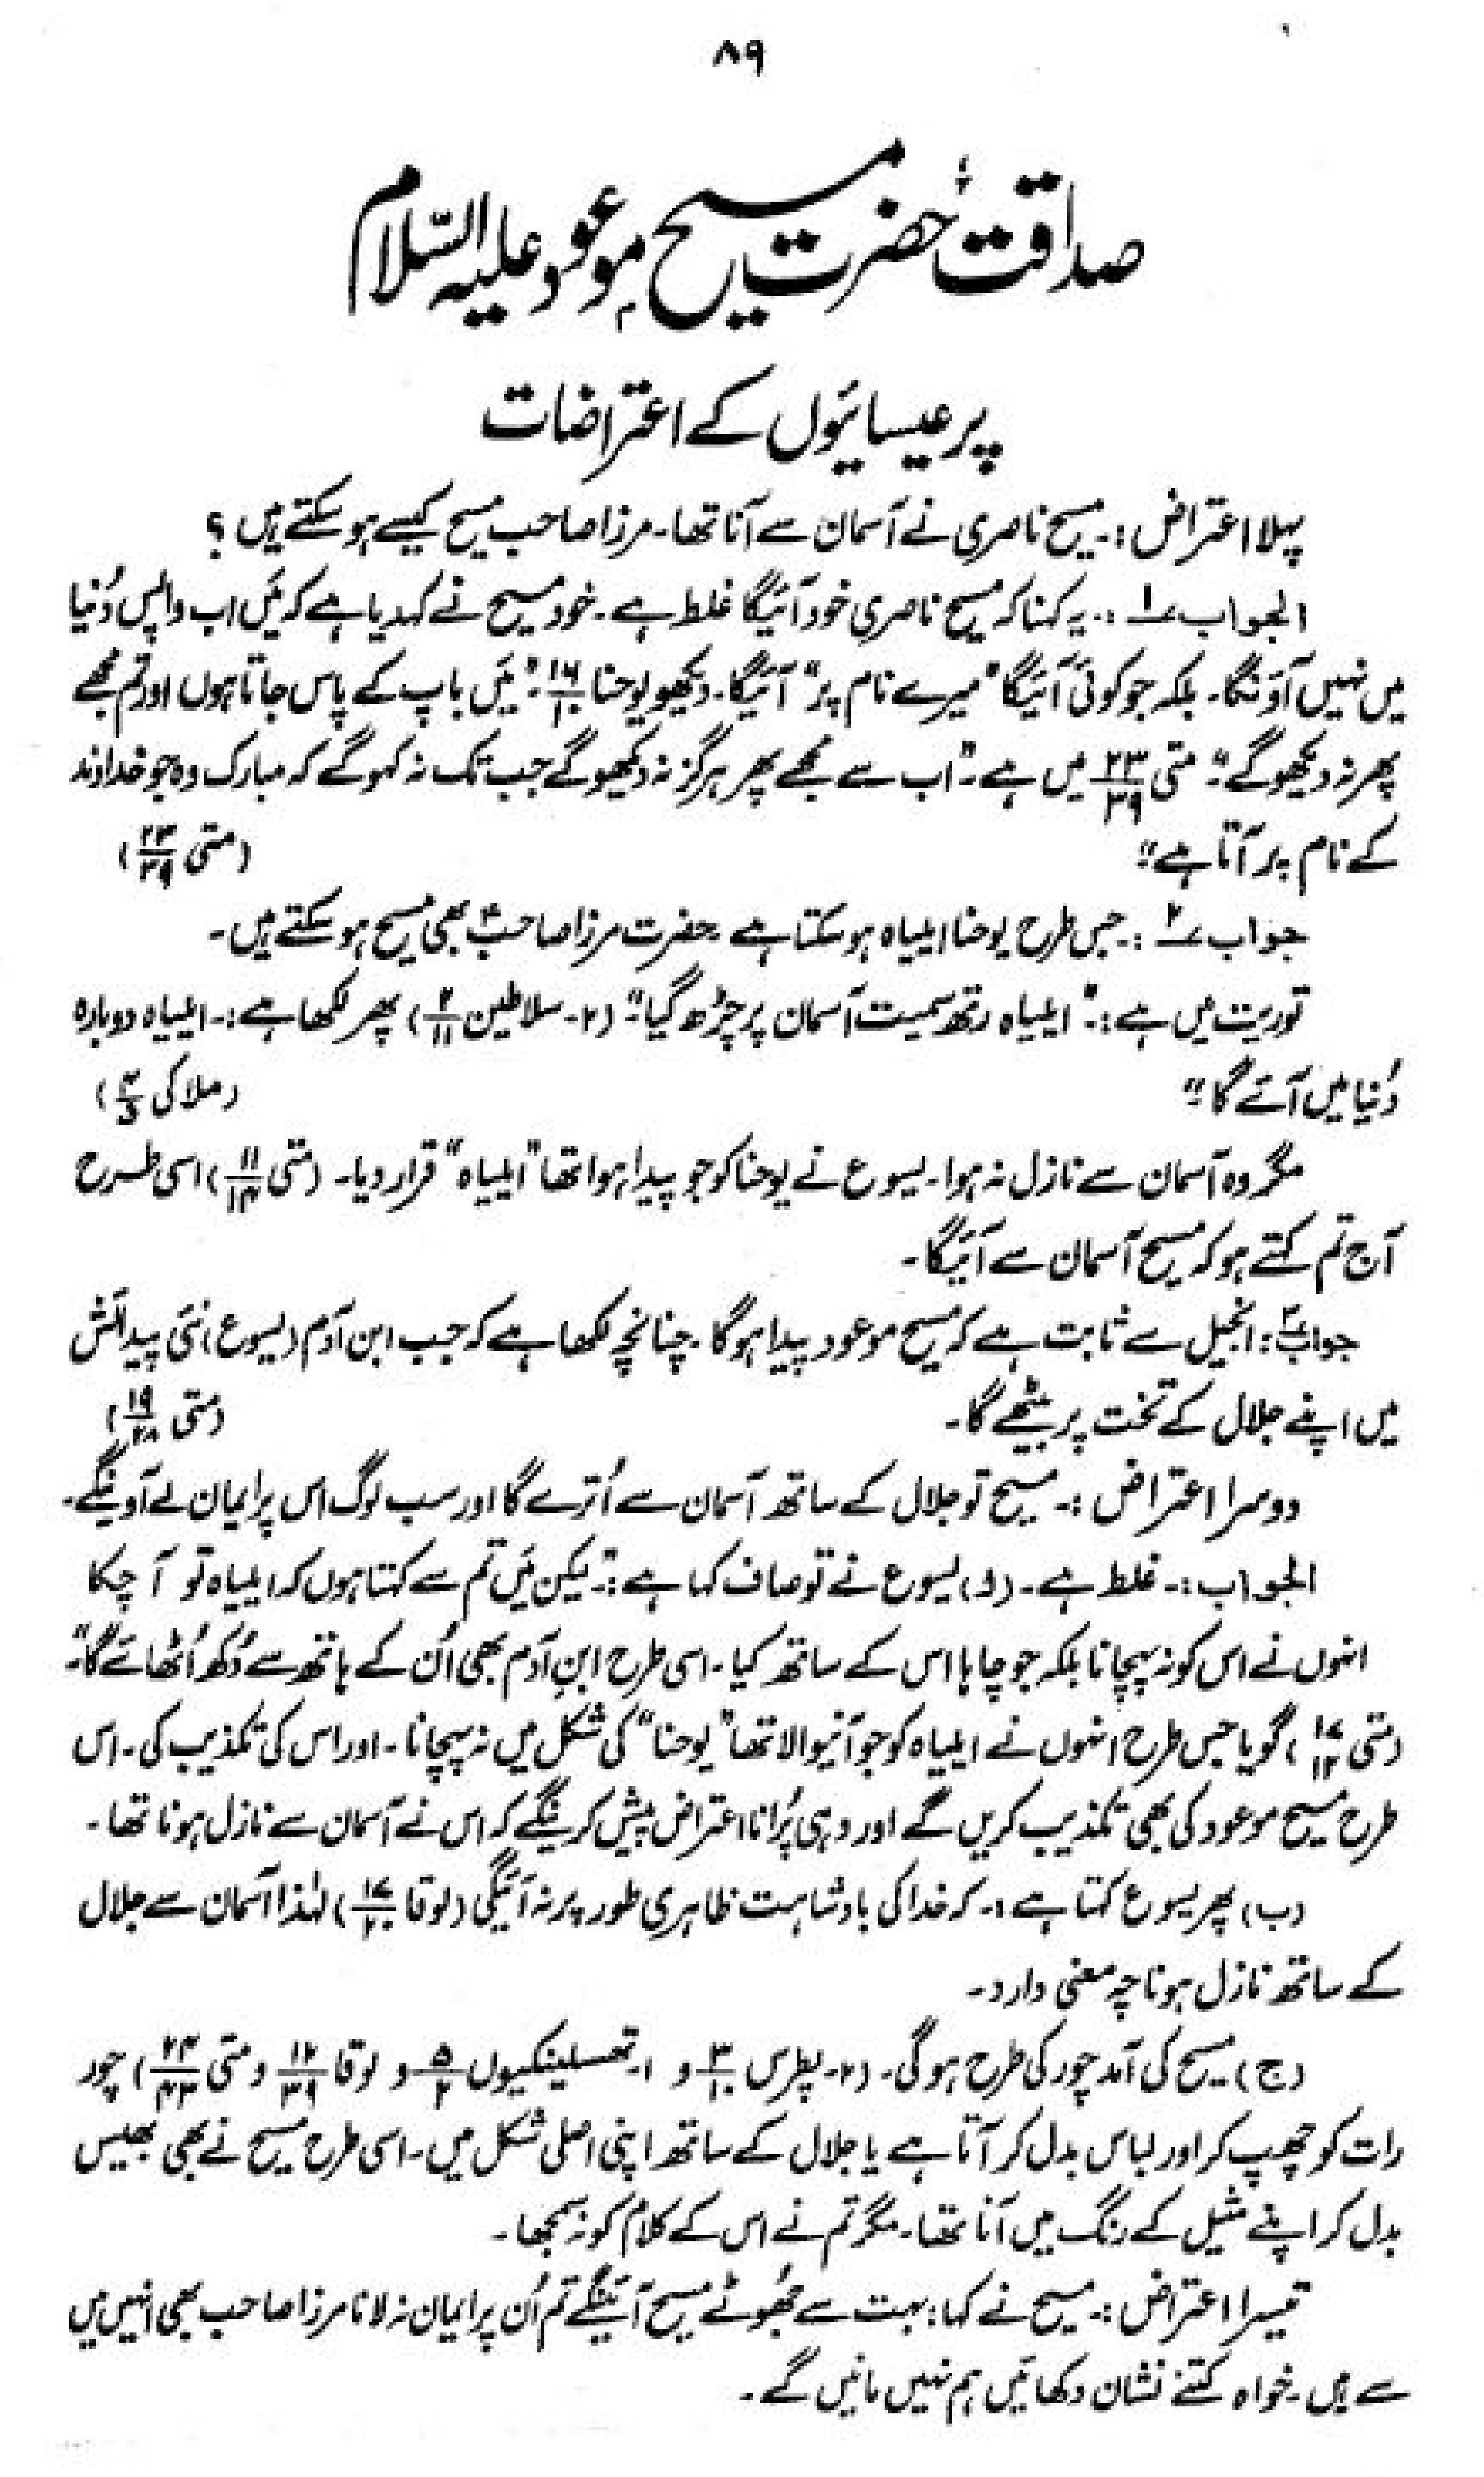 ۸۹
صداقت حضرت مسیح موعود علیہ السّلام
پر عیسائیوں کے اعتراضات
پہلا اعتراض :۔ مسیح ناصری نے آسمان سے آنا تھا۔ مرزا صاحب مسیح کیسے ہو سکتے ہیں ؟
الجواب ۱ :۔ یہ کہنا کہ مسیح ناصری خود آئیگا غلط ہے۔ خود مسیح نے کہدیا ہے کہ مَیں اب واپس دُنیا
میں نہیں آؤنگا۔ بلکہ جو کوئی آئیگا "میرے نام پر" آئیگا۔ دیکھو یوحنا ۱۶/۱۰ :" مَیں باپ کے پاس جاتا ہوں اور تم مجھے
پھر نہ دیکھو گے"۔ متی ۲۳/۳۹ میں ہے۔ "اب سے مجھے پھر ہرگز نہ دیکھو گے جب تک نہ کہو گے کہ مبارک وہ جو خداوند
کے نام پر آتا ہے" (متی ۲۳/۳۹)
جواب ۲ :۔ جس طرح یوحنا ایلیاہ ہو سکتا ہے۔ حضرت مرزا صاحبؑ بھی مسیح ہو سکتے ہیں۔
توریت میں ہے :۔ "ایلیاہ رتھ سمیت آسمان پر چڑھ گیا"۔ (۲۔ سلاطین ۲/۱۱) پھر لکھا ہے :۔ ایلیاہ دوبارہ
دُنیا میں آئے گا"۔ (ملاکی ۴/۵)
مگر وہ آسمان سے نازل نہ ہوا۔ یسوع نے یوحنا کو جو پیدا ہوا تھا "ایلیاہ" قرار دیا۔ (متی ۱۱/۱۴) اسی طرح
آج تم کہتے ہو کہ مسیح آسمان سے آئیگا۔
جواب ۳ : انجیل سے ثابت ہے کہ مسیح موعود پیدا ہو گا۔ چنانچہ لکھا ہے کہ جب ابن آدم (یسوع) نئی پیدائش
میں اپنے جلال کے تخت پر بیٹھے گا۔ (متی ۱۹/۲۸)
دوسرا اعتراض :۔ مسیح تو جلال کے ساتھ آسمان سے اُترے گا اور سب لوگ اس پر ایمان لے آوینگے۔
الجواب :۔ غلط ہے۔ (ا) یسوع نے تو صاف کہا ہے :۔ "لیکن مَیں تم سے کہتا ہوں کہ ایلیاہ تو آ چکا
انہوں نے اس کو نہ پہچانا بلکہ جو چاہا اس کے ساتھ کیا۔ اسی طرح ابنِ آدم بھی اُن کے ہاتھ سے دُکھ اُٹھائے گا"۔
(متی ۱۷/۱۲) گویا جس طرح انہوں نے ایلیاہ کو جو آنیوالا تھا "یوحنا" کی شکل میں نہ پہچانا۔ اور اس کی تکذیب کی۔ اس
طرح مسیح موعود کی بھی تکذیب کریں گے اور وہی پُرانا اعتراض پیش کرینگے کہ اس نے آسمان سے نازل ہونا تھا۔
(ب) پھر یسوع کہتا ہے :۔ کہ خدا کی بادشاہت ظاہری طور پر نہ آئیگی (لوقا ۱۷/۲۰) لہٰذا آسمان سے جلال
کے ساتھ نازل ہونا چہ معنی دارد۔
(ج) مسیح کی آمد چور کی طرح ہو گی۔ (۲۔ پطرس ۳/۱۰ و ۱۔ تھسلینکیوں ۵/۲ و لوقا ۱۲/۳۹ و متی ۲۴/۴۳) چور
رات کو چھپ کر اور لباس بدل کر آتا ہے یا جلال کے ساتھ اپنی اصلی شکل میں۔ اسی طرح مسیح نے بھی بھیس
بدل کر اپنے مثیل کے رنگ میں آنا تھا۔ مگر تم نے اس کے کلام کو نہ سمجھا۔
تیسرا اعتراض :۔ مسیح نے کہا : بہت سے جھُوٹے مسیح آئینگے تم اُن پر ایمان نہ لانا مرزا صاحب بھی انہیں میں
سے ہیں۔ خواہ کتنے نشان دکھائیں ہم نہیں مانیں گے۔